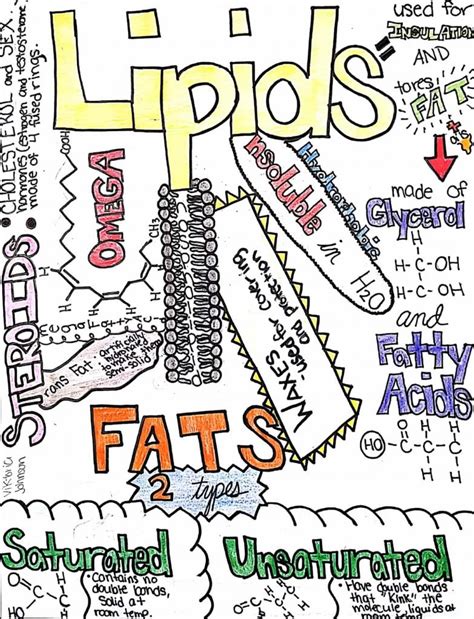 Lipids
used for
INSULATION
AND
stores
FAT
made of
Glycerol
H
H-C-OH
H-C-OH
and
Fatty
Acids
HO
O
C-C-C-
H
• CHOLESTEROL and SEX
hormones (estrogen and testosterone)
made of 4 fused rings.
STEROIDS:
OMEGA
COOH
CH₃
H
Hydrophobic
insoluble
in H₂O
WAXES
-used for covering
and protection
Trans Fat
artificially
to make them
semi-solid
Viktoria
Johnson
FATS
2 types
Saturated
• Contains no
double bonds,
Solid at
room temp.
O
HO
C
H
Unsaturated
• Have double bonds
that "kink" the
molecule, liquids at
room temp.
O
HO
C
H